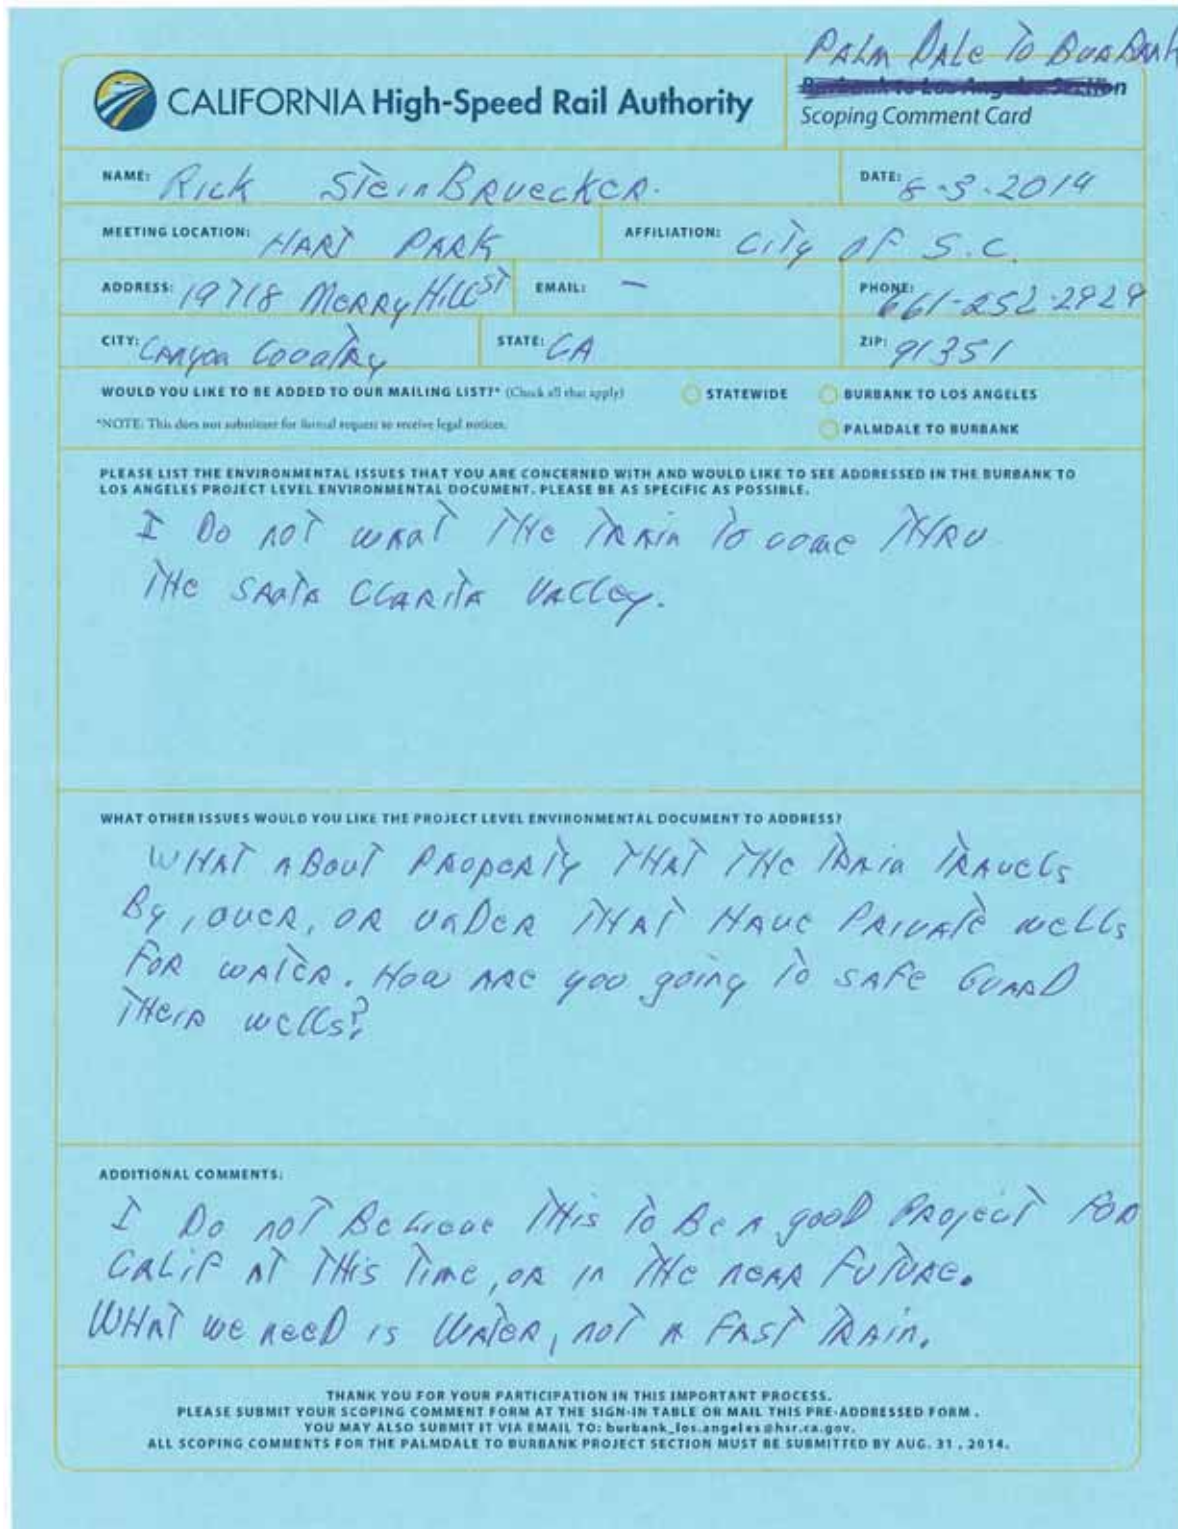 PALM DALE TO BURBANK
Burbank to Los Angeles Section
CALIFORNIA High-Speed Rail Authority
Scoping Comment Card
NAME: RICK STEINBRUECKER.
DATE: 8-3-2014
MEETING LOCATION: HART PARK
AFFILIATION: CITY OF S.C.
ADDRESS: 19718 MERRYHILL ST
EMAIL: —
PHONE: 661-252-2929
CITY: CANYON COUNTRY
STATE: CA
ZIP: 91351
WOULD YOU LIKE TO BE ADDED TO OUR MAILING LIST?* (Check all that apply) STATEWIDE BURBANK TO LOS ANGELES
*NOTE: This does not substitute for formal request to receive legal notices. PALMDALE TO BURBANK
PLEASE LIST THE ENVIRONMENTAL ISSUES THAT YOU ARE CONCERNED WITH AND WOULD LIKE TO SEE ADDRESSED IN THE BURBANK TO
LOS ANGELES PROJECT LEVEL ENVIRONMENTAL DOCUMENT. PLEASE BE AS SPECIFIC AS POSSIBLE.
I DO NOT WNAT THE TRAIN TO COME THRU
THE SANTA CLARITA VALLEY.
WHAT OTHER ISSUES WOULD YOU LIKE THE PROJECT LEVEL ENVIRONMENTAL DOCUMENT TO ADDRESS?
WHAT ABOUT PROPERTY THAT THE TRAIN TRAVELS
BY, OVER, OR UNDER THAT HAVE PRIVATE WELLS
FOR WATER. HOW ARE YOU GOING TO SAFE GUARD
THEIR WELLS?
ADDITIONAL COMMENTS:
I DO NOT BELIEVE THIS TO BE A GOOD PROJECT FOR
CALIF AT THIS TIME, OR IN THE NEAR FUTURE.
WHAT WE NEED IS WATER, NOT A FAST TRAIN.
THANK YOU FOR YOUR PARTICIPATION IN THIS IMPORTANT PROCESS.
PLEASE SUBMIT YOUR SCOPING COMMENT FORM AT THE SIGN-IN TABLE OR MAIL THIS PRE-ADDRESSED FORM.
YOU MAY ALSO SUBMIT IT VIA EMAIL TO: burbank_los.angeles@hsr.ca.gov.
ALL SCOPING COMMENTS FOR THE PALMDALE TO BURBANK PROJECT SECTION MUST BE SUBMITTED BY AUG. 31, 2014.